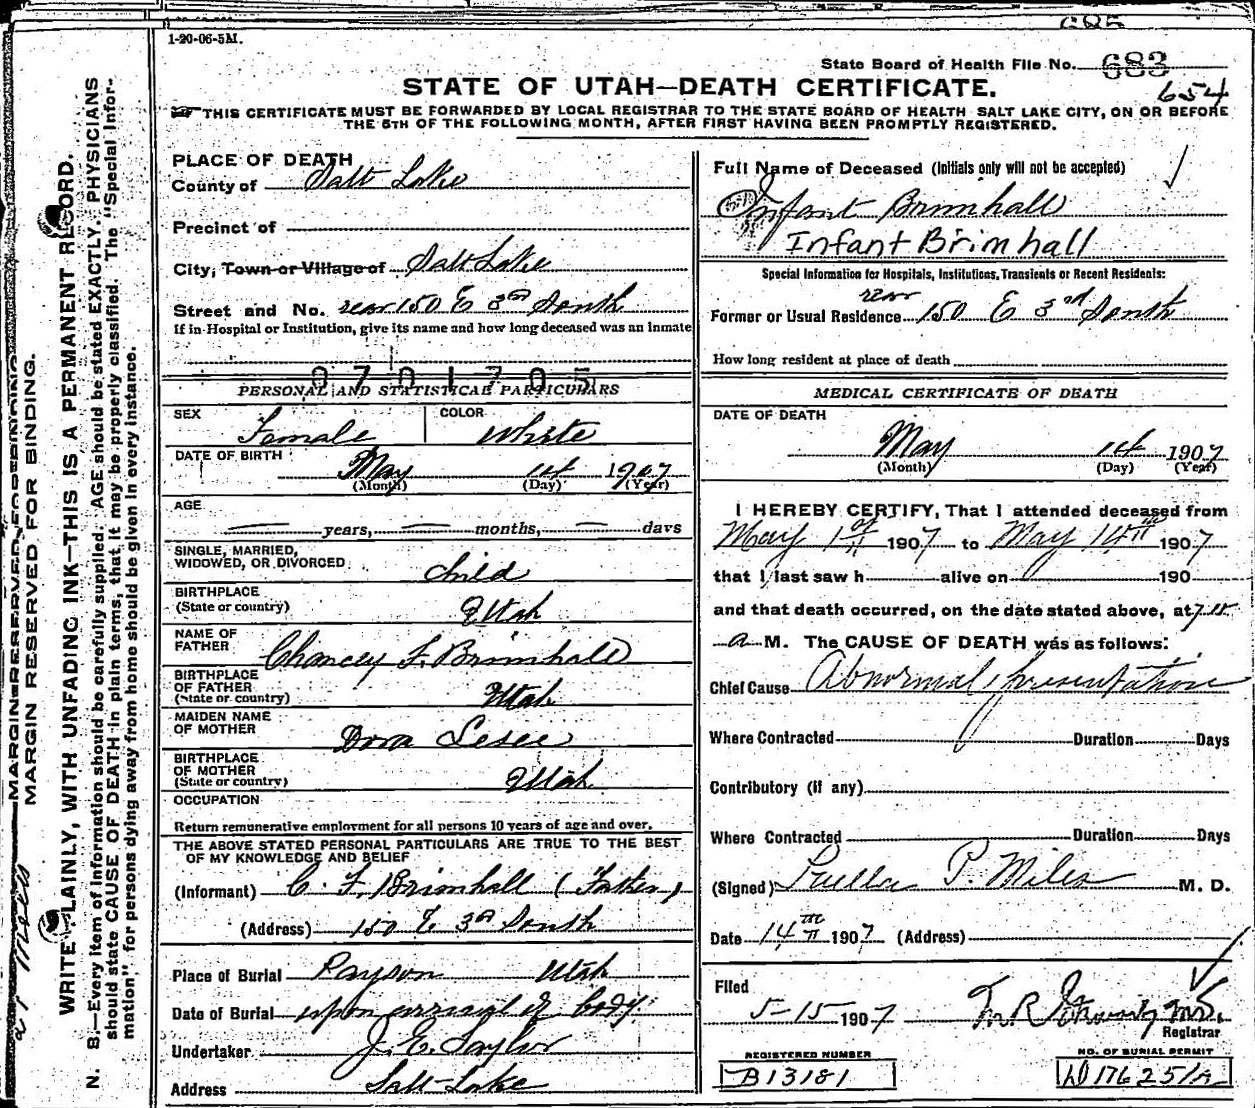 1-20-06-5M.
State Board of Health File No. 683
654
STATE OF UTAH—DEATH CERTIFICATE.
THIS CERTIFICATE MUST BE FORWARDED BY LOCAL REGISTRAR TO THE STATE BOARD OF HEALTH SALT LAKE CITY, ON OR BEFORE
THE 5TH OF THE FOLLOWING MONTH, AFTER FIRST HAVING BEEN PROMPTLY REGISTERED.
MARGIN RESERVED FOR BINDING.
WRITE PLAINLY, WITH UNFADING INK—THIS IS A PERMANENT RECORD.
N. B.—Every item of information should be carefully supplied. AGE should be stated EXACTLY. PHYSICIANS
should state CAUSE OF DEATH in plain terms, that it may be properly classified. The "Special Infor-
mation" for persons dying away from home should be given in every instance.
PLACE OF DEATH
County of Salt Lake
Precinct of
City, Town or Village of Salt Lake
Street and No. rear 150 E 3rd South
If in Hospital or Institution, give its name and how long deceased was an inmate
0701705
PERSONAL AND STATISTICAL PARTICULARS
SEX Female COLOR White
DATE OF BIRTH May 14 1907
(Month) (Day) (Year)
AGE
years, months, days
SINGLE, MARRIED,
WIDOWED, OR DIVORCED child
BIRTHPLACE
(State or country) Utah
NAME OF
FATHER Chancey F. Brimhall
BIRTHPLACE
OF FATHER
(State or country) Utah
MAIDEN NAME
OF MOTHER Dora
BIRTHPLACE
OF MOTHER
(State or country) Utah
OCCUPATION
Return remunerative employment for all persons 10 years of age and over.
THE ABOVE STATED PERSONAL PARTICULARS ARE TRUE TO THE BEST
OF MY KNOWLEDGE AND BELIEF
(Informant) C. F. Brimhall (Father)
(Address) 150 E 3rd South
Place of Burial Payson Utah
Date of Burial upon arrival of body.
Undertaker J. E. Taylor
Address Salt Lake
Full Name of Deceased (Initials only will not be accepted)
Infant Brimhall
Infant Brimhall
Special Information for Hospitals, Institutions, Transients or Recent Residents:
rear
Former or Usual Residence 150 E 3rd South
How long resident at place of death
MEDICAL CERTIFICATE OF DEATH
DATE OF DEATH
May 14 1907
(Month) (Day) (Year)
I HEREBY CERTIFY, That I attended deceased from
May 1st 1907 to May 14th 1907
that I last saw h alive on 190
and that death occurred, on the date stated above, at 7.15
a M. The CAUSE OF DEATH was as follows:
Chief Cause Abnormal presentation
Where Contracted Duration Days
Contributory (if any)
Where Contracted Duration Days
(Signed) Luella P. Miles M. D.
Date 14th 1907 (Address)
Filed
5-15 1907
Registrar
REGISTERED NUMBER
B13181
NO. OF BURIAL PERMIT